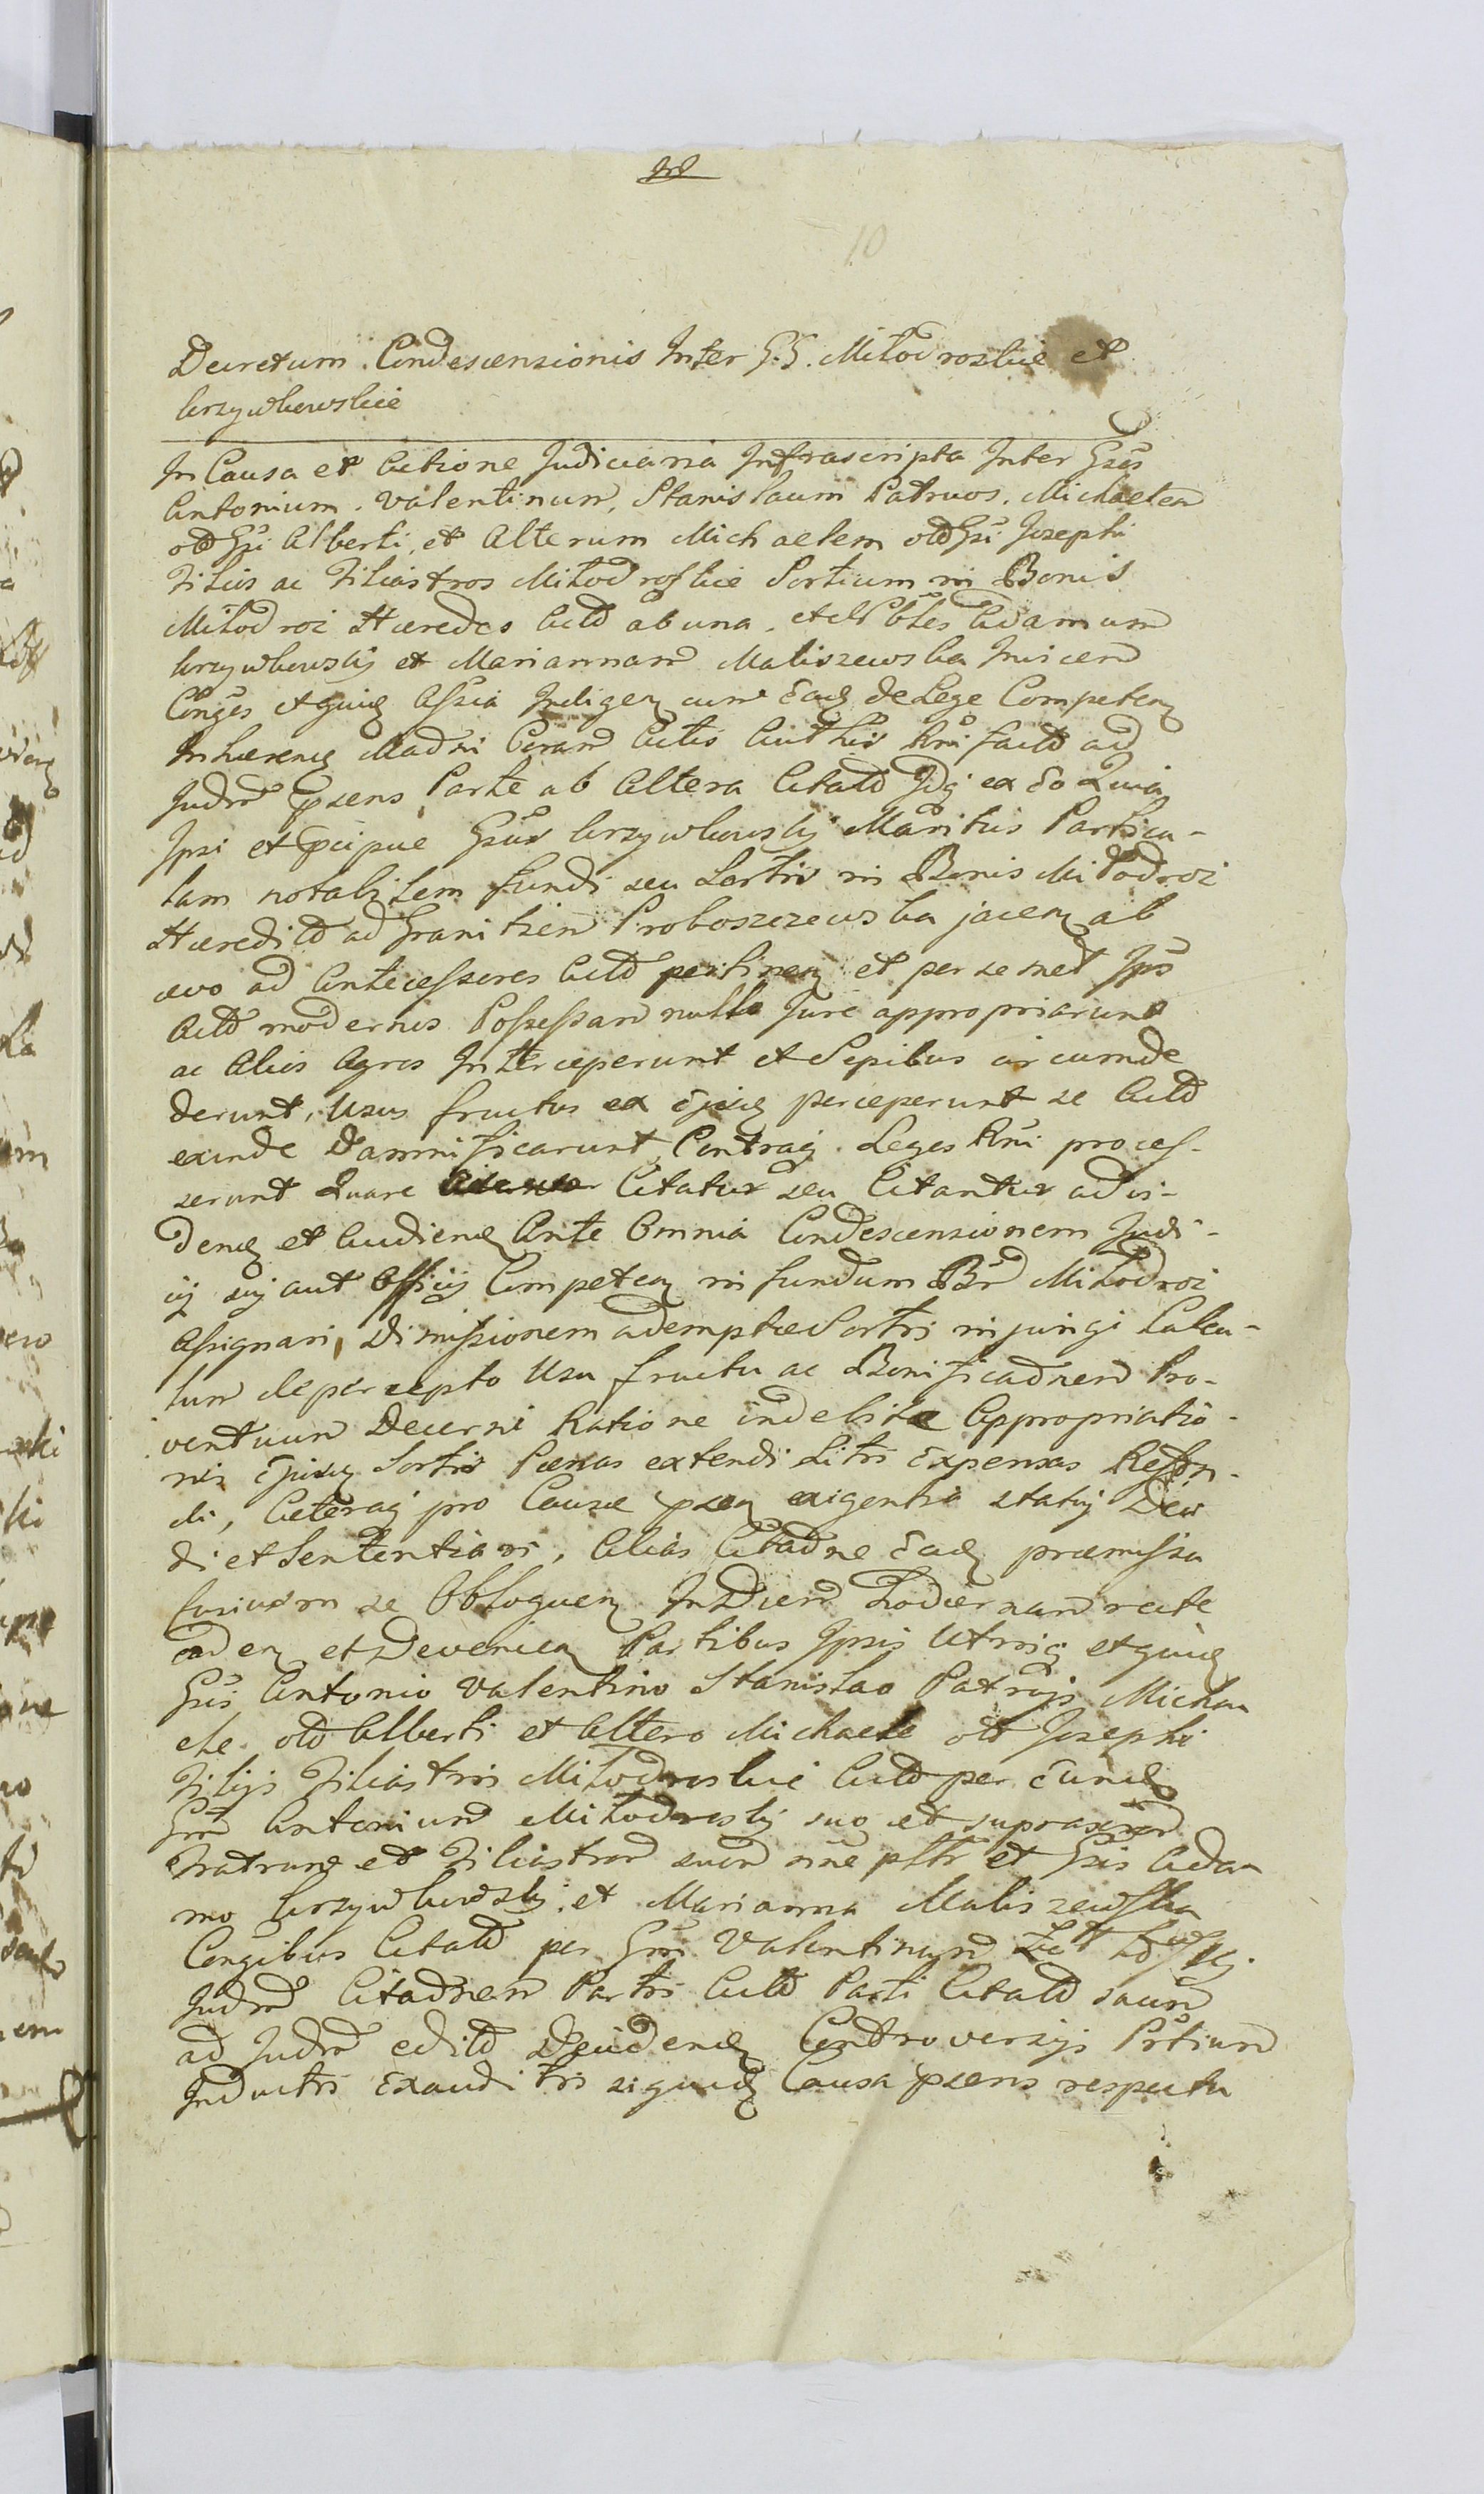 10
Decretum Condescensionis Inter G.G. Miłodroskie et
krzywkowskie
In Causa et Actione Judiciaria Infrascripta Inter Gsos
Antonium, Valentinum, Stanislaum Patruos, Michaelem
old Gsi Alberti, et Alterum Michaelem old Gsi Josephi
Filios ac Filiastros Miłodroskie Sortium in Bonis
Miłodroż Hæredes Actd ab una, et Nobles Adamum
krzywkowskij et Mariannam Maliszewska Invicem
Conges et quivq Assia Indigen cum Eadq de Lege Competen
Inhærendq Madti Coram Actis Authis Rni factd adq
Judm Psens Parte ab Altera Citatd Idq ex Eo Quia
Ipsi et Pcipue Gsus krzywkowskij Maritus Particu-
lam notabilem fundi seu Sortis in Bonis Miłodroż
Hæreditd ad Granitiem Proboszczewska jacen ab
ævo ad Antecessores Actd pertinen et per semet Ipos
Actd modernos Possessam nullo Jure appropriarunt
ac Alios Agros Interceperunt et Sepibus circumde
derunt, Usus fructus ex Ejusdq perceperunt se Actd
exinde Damnificarunt, Contraq Leges Rni proces-
serunt Quare Citatur seu Citantur ad vi-
dendq et Audiendq Ante Omnia Condescensionem Judi-
cij sij aut Officij Competen in fundum Brd Miłodroż
Assignari, Dimissionem ademptæ Sortis injungi Calcu-
lum de percepto Usu fructu ac Bonificadnem Pro-
ventuum Decerni Ratione indebitæ Appropriatio-
nis Ejusdq Sortis Pœnas extendi Litis Expensas Refun-
di, Cæteraq pro Causæ Psen exigentia statuj Deci
di et Sententiari, Alias Citadne Eadq præmissa
fusius in se Obloquen In Diem Hodiernam recte
caden et Devenien Partibus Ipsis Utrisq et quivq
Gsis Antonio Valentino Stanislao Patruis, Micha
ele old Alberti et Altero Michaele old Josephi
Filijs Filiastris Miłodroskie Actd per Eundq
Gsm Antonium Miłodroskij suo et suprascrd
Fratrumq et Filiastrord suord nine pltr et Gsis Ada-
mo krzywkowskij et Marianna Maliszewska
Congibus Citatd per Gsm Valentinum
Judm Citadnem Partis Actd Parti Citatd sacum
ad Judm editd Deducendq Controversijs Partium
Inductis Exauditis siquidq Causa Psens respectu